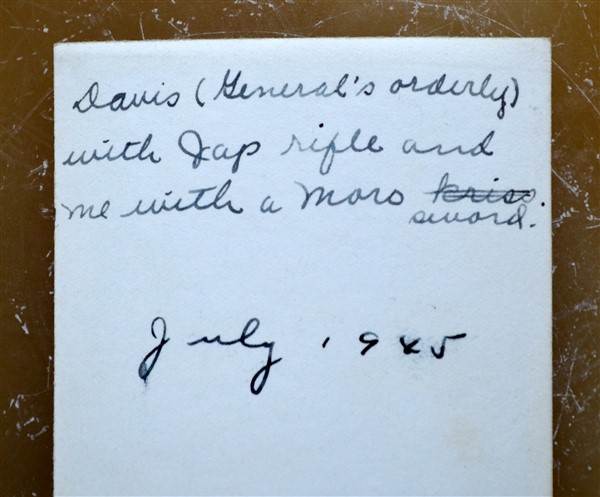 Davis (General's orderly)
with Jap rifle and
me with a Moro kriss
sword.
July 1945